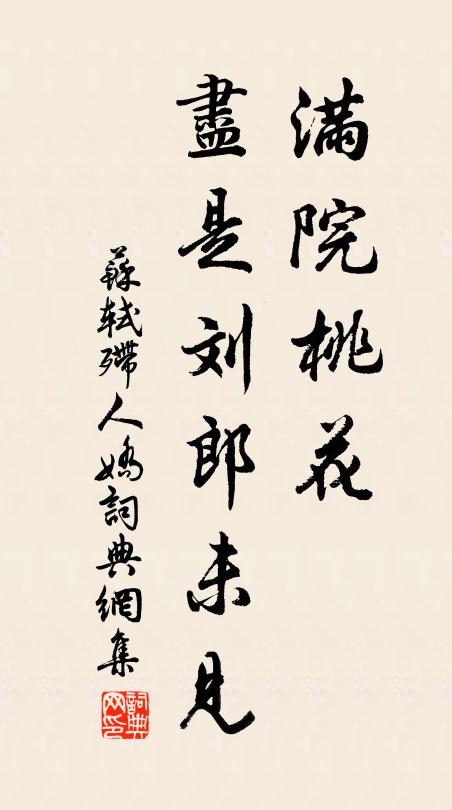 满院桃花
盡是刘郎未見
蘇軾殢人嬌詞典網集
詞典网印